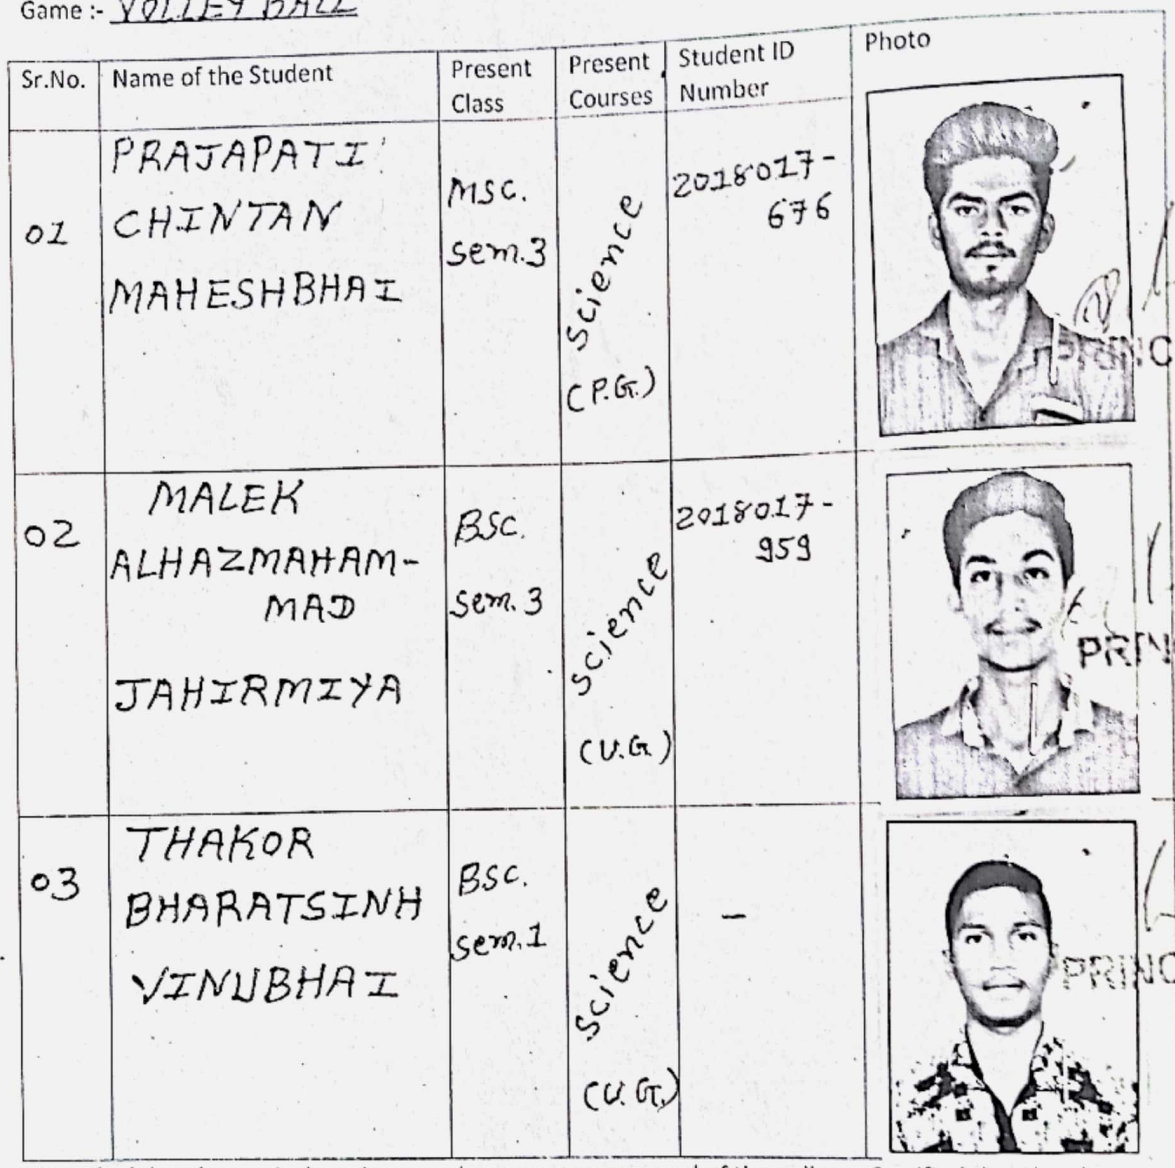 Game :- VOLLEY BALL
Sr.No. Name of the Student Present Class Present Courses Student ID Number Photo
01
PRAJAPATI
CHINTAN
MAHESHBHAI
MSC.
sem.3
Science
(P.G.)
2018017-
676
PRINC
02
MALEK
ALHAZMAHAM-
MAD
JAHIRMIYA
BSC.
sem.3
Science
(U.G.)
2018017-
959
PRIN
03
THAKOR
BHARATSINH
VINUBHAI
BSC.
sem.1
Science
(U.G.)
-
PRINC